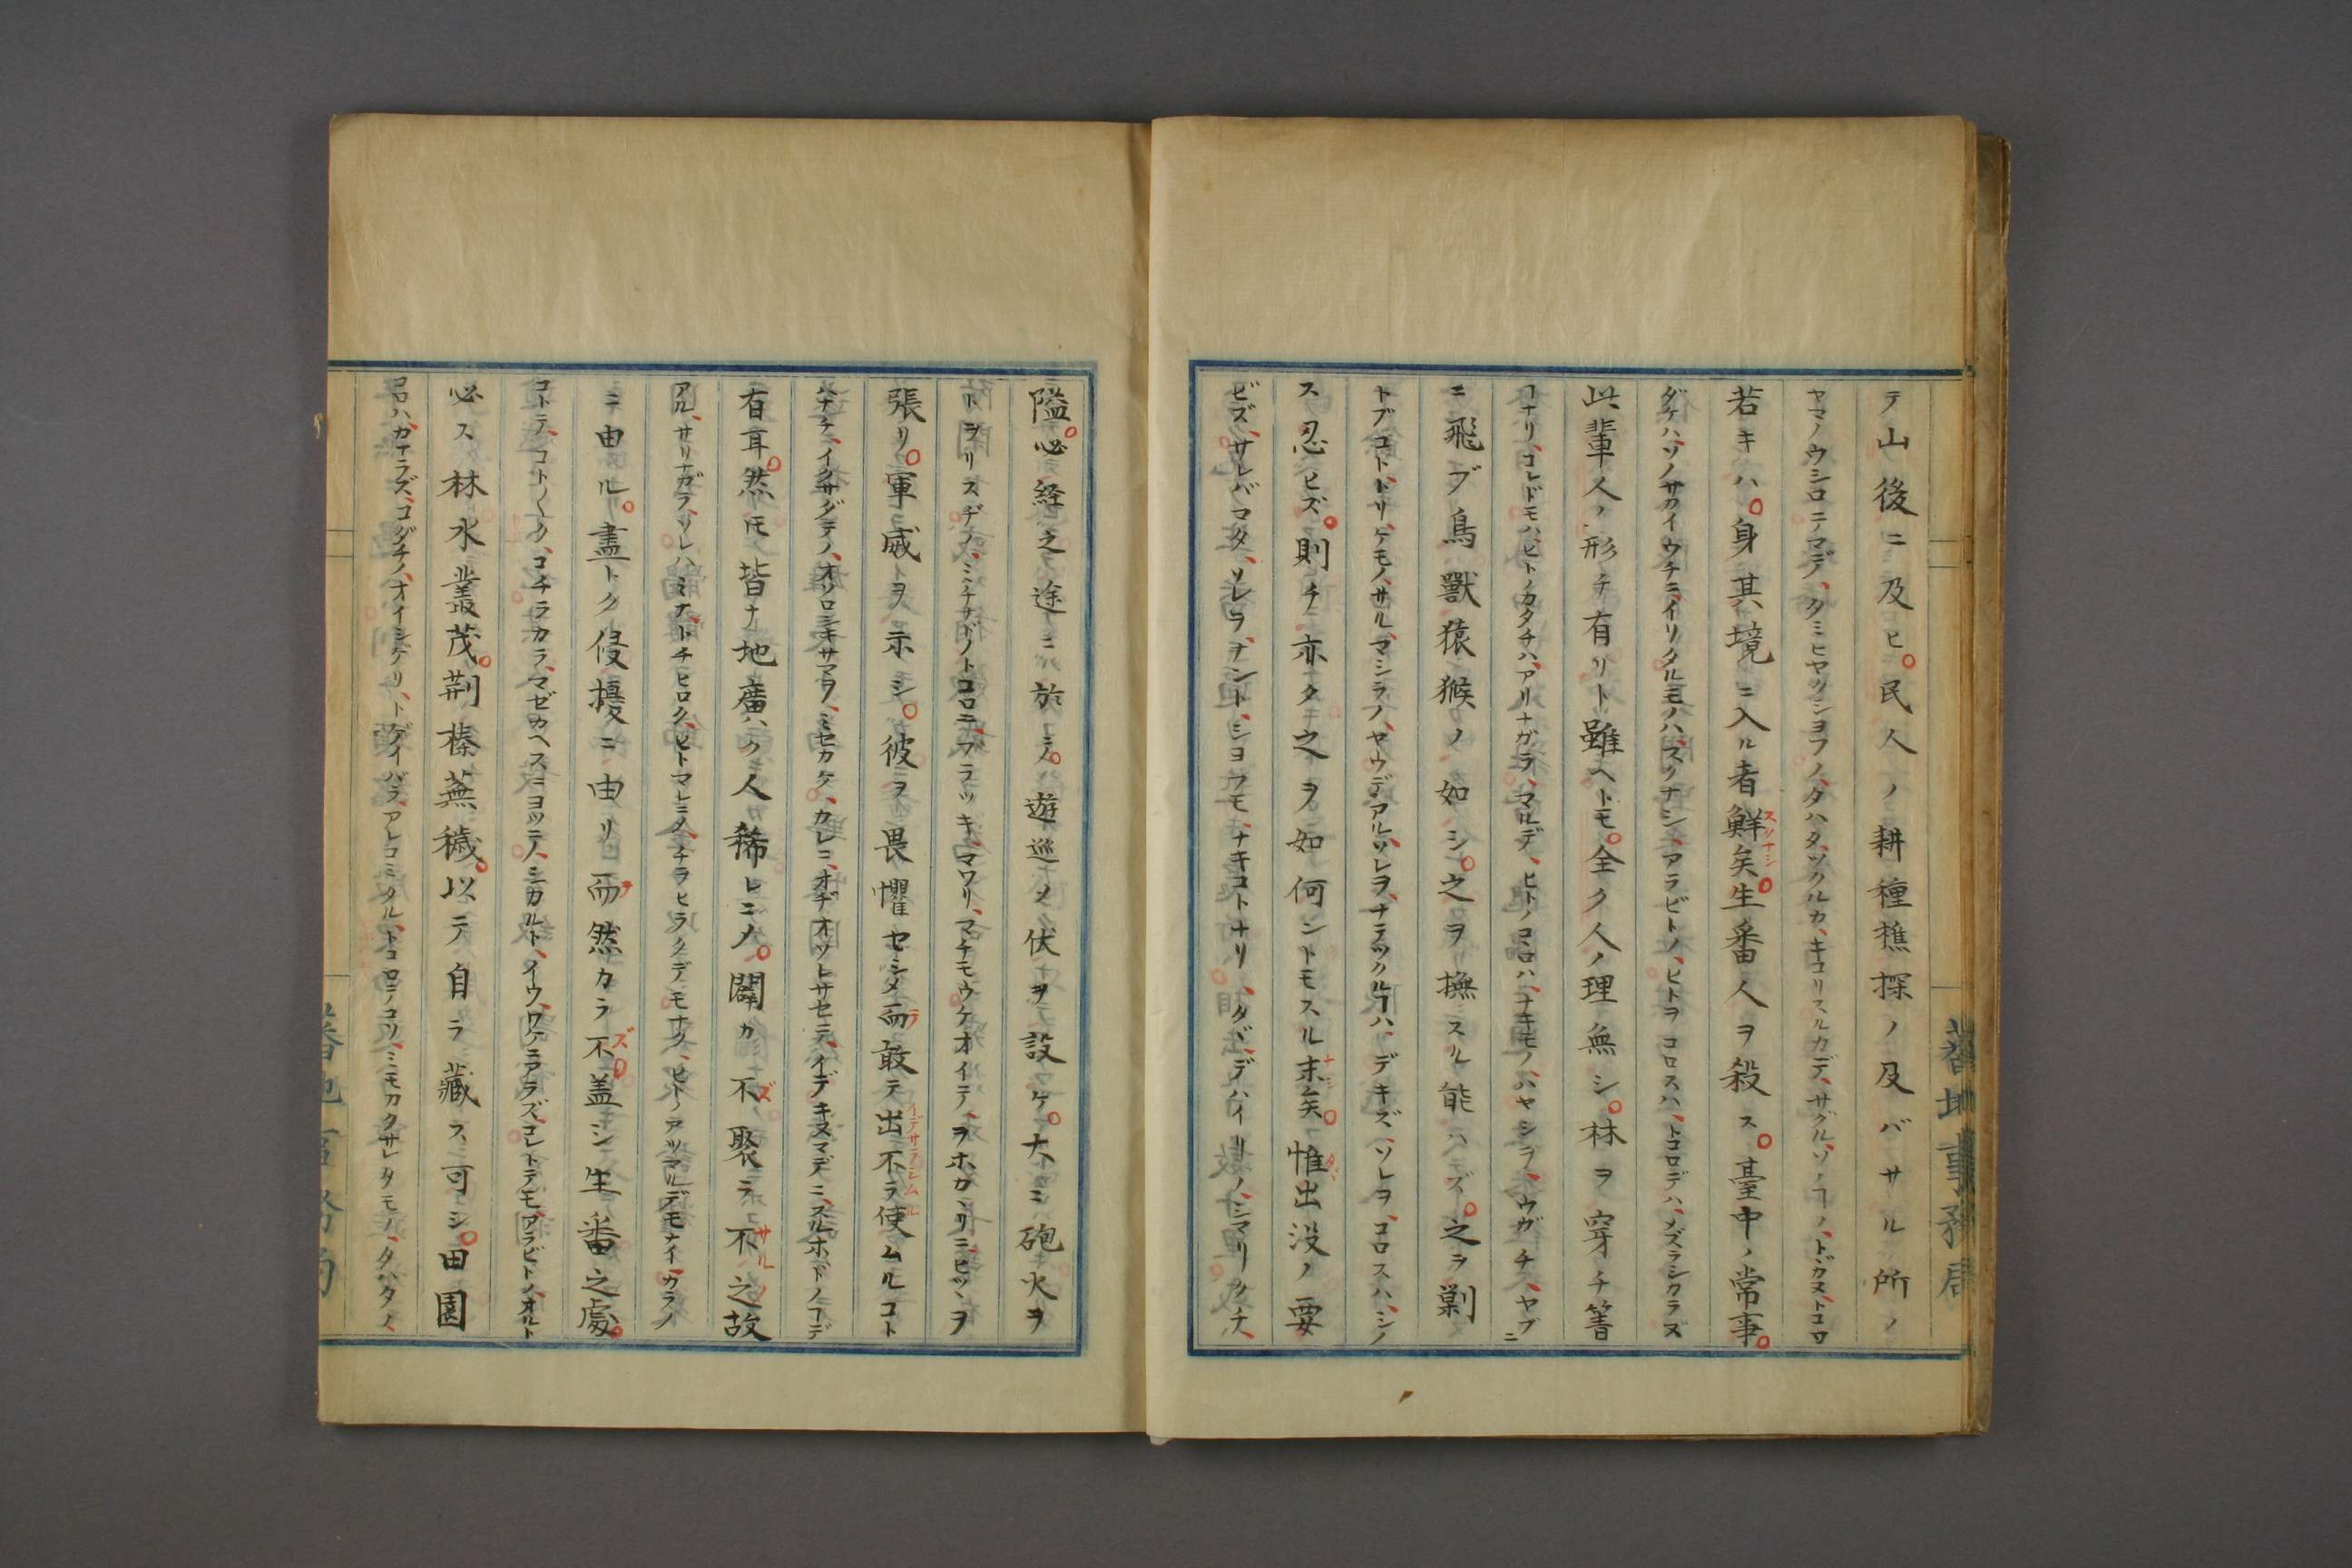 テ山後ニ及ヒ民人ノ耕種樵採ノ及バサル所ノ
ヤマノウシロニマデ、タミヒヤクシヨフノ、タハタ、ツクルカ、キコリスルカデ、サグル、ソノヿノ、トドカヌ、トコロ
若キハ身其境ニ入ル者鮮矣生番人ヲ殺ス臺中ノ常事
スクナシ
ダケハ、ソノサカイウチニ、イリタルモノハ、スクナシ、アラビトノ、ヒトヲコロスハ、トコロデハ、メズラシカラヌ
此輩人ノ形チ有リト雖ヘトモ全ク人ノ理無シ林ヲ穿チ箐
ヿナリ、コレドモハ、ヒトノカタチハ、アリナガラ、マルデ、ヒトノコヽロハ、ナキモノ、ハヤシヲ、ウガチ、ヤブニ
ニ飛ブ鳥獸猿猴ノ如シ之ヲ撫スル能ハズ之ラ剿
トブコト、トリ、ケモノ、サル、マシラノ、ヤウデアル、ソレヲ、ナラツクルヿハ、デキズ、ソレヲ、コロスハ、シノ
ス忍ヒズ則チ亦タ之ヲ如何ントモスル末矣惟出没ノ要
ナシ
タヾ
ビズ、サレバマタ、ソレヲ、ナントシヨフモ、ナキコトナリ、タヾ、デハイリノ、シマリクチ、
蕃地事務局
隘必経之途ニ於ノ遊巡ノ伏ヲ設ケ大ニ砲火ヲ
トヲリスヂノ、ミチサキノトコロニ、フラツキ、マワリ、マチモウケオイテ、ヲホカリニ、ヒヅヽヲ
張リ軍威ヲ示シ彼ヲ畏懼セシメ而敢テ出不ラ使ムルコト
イデサラシムル
ハナチ、イクサダテノ、オソロシキサマヲ、ミセカケ、カレヲ、オヂオソレサセテ、イデキヌマデニ、スルホドノヿデ
有耳然モ皆ナ地廣ク人稀レニノ闢カ不聚ラ不之故
ズ
サルノ
アル、サリナガラ、ソレハ、ミナ、トチヒロク、ヒトマレニメ、チヲヒラクデモナク、ヒトノアツマルデモナイ、カラノ
ニ由ル盡トク侵擾ニ由リ而然カラ不盖シ生番之處
ズ
コトテ、コト〱ク、コチラカラ、マゼカヘスニヨツテノ、シカルト、イウ、ワケニアラズ、コレトテモアラビトノ、オルト
必ス林水叢茂荆榛蕪穢以テ自ラ藏ス可シ田園
コロハ、カナラズ、コダチノ、オイシケリ、トゲイバラ、アレコミタル、トコロデコソ、ミモカクサレタモノ、タハタノ、